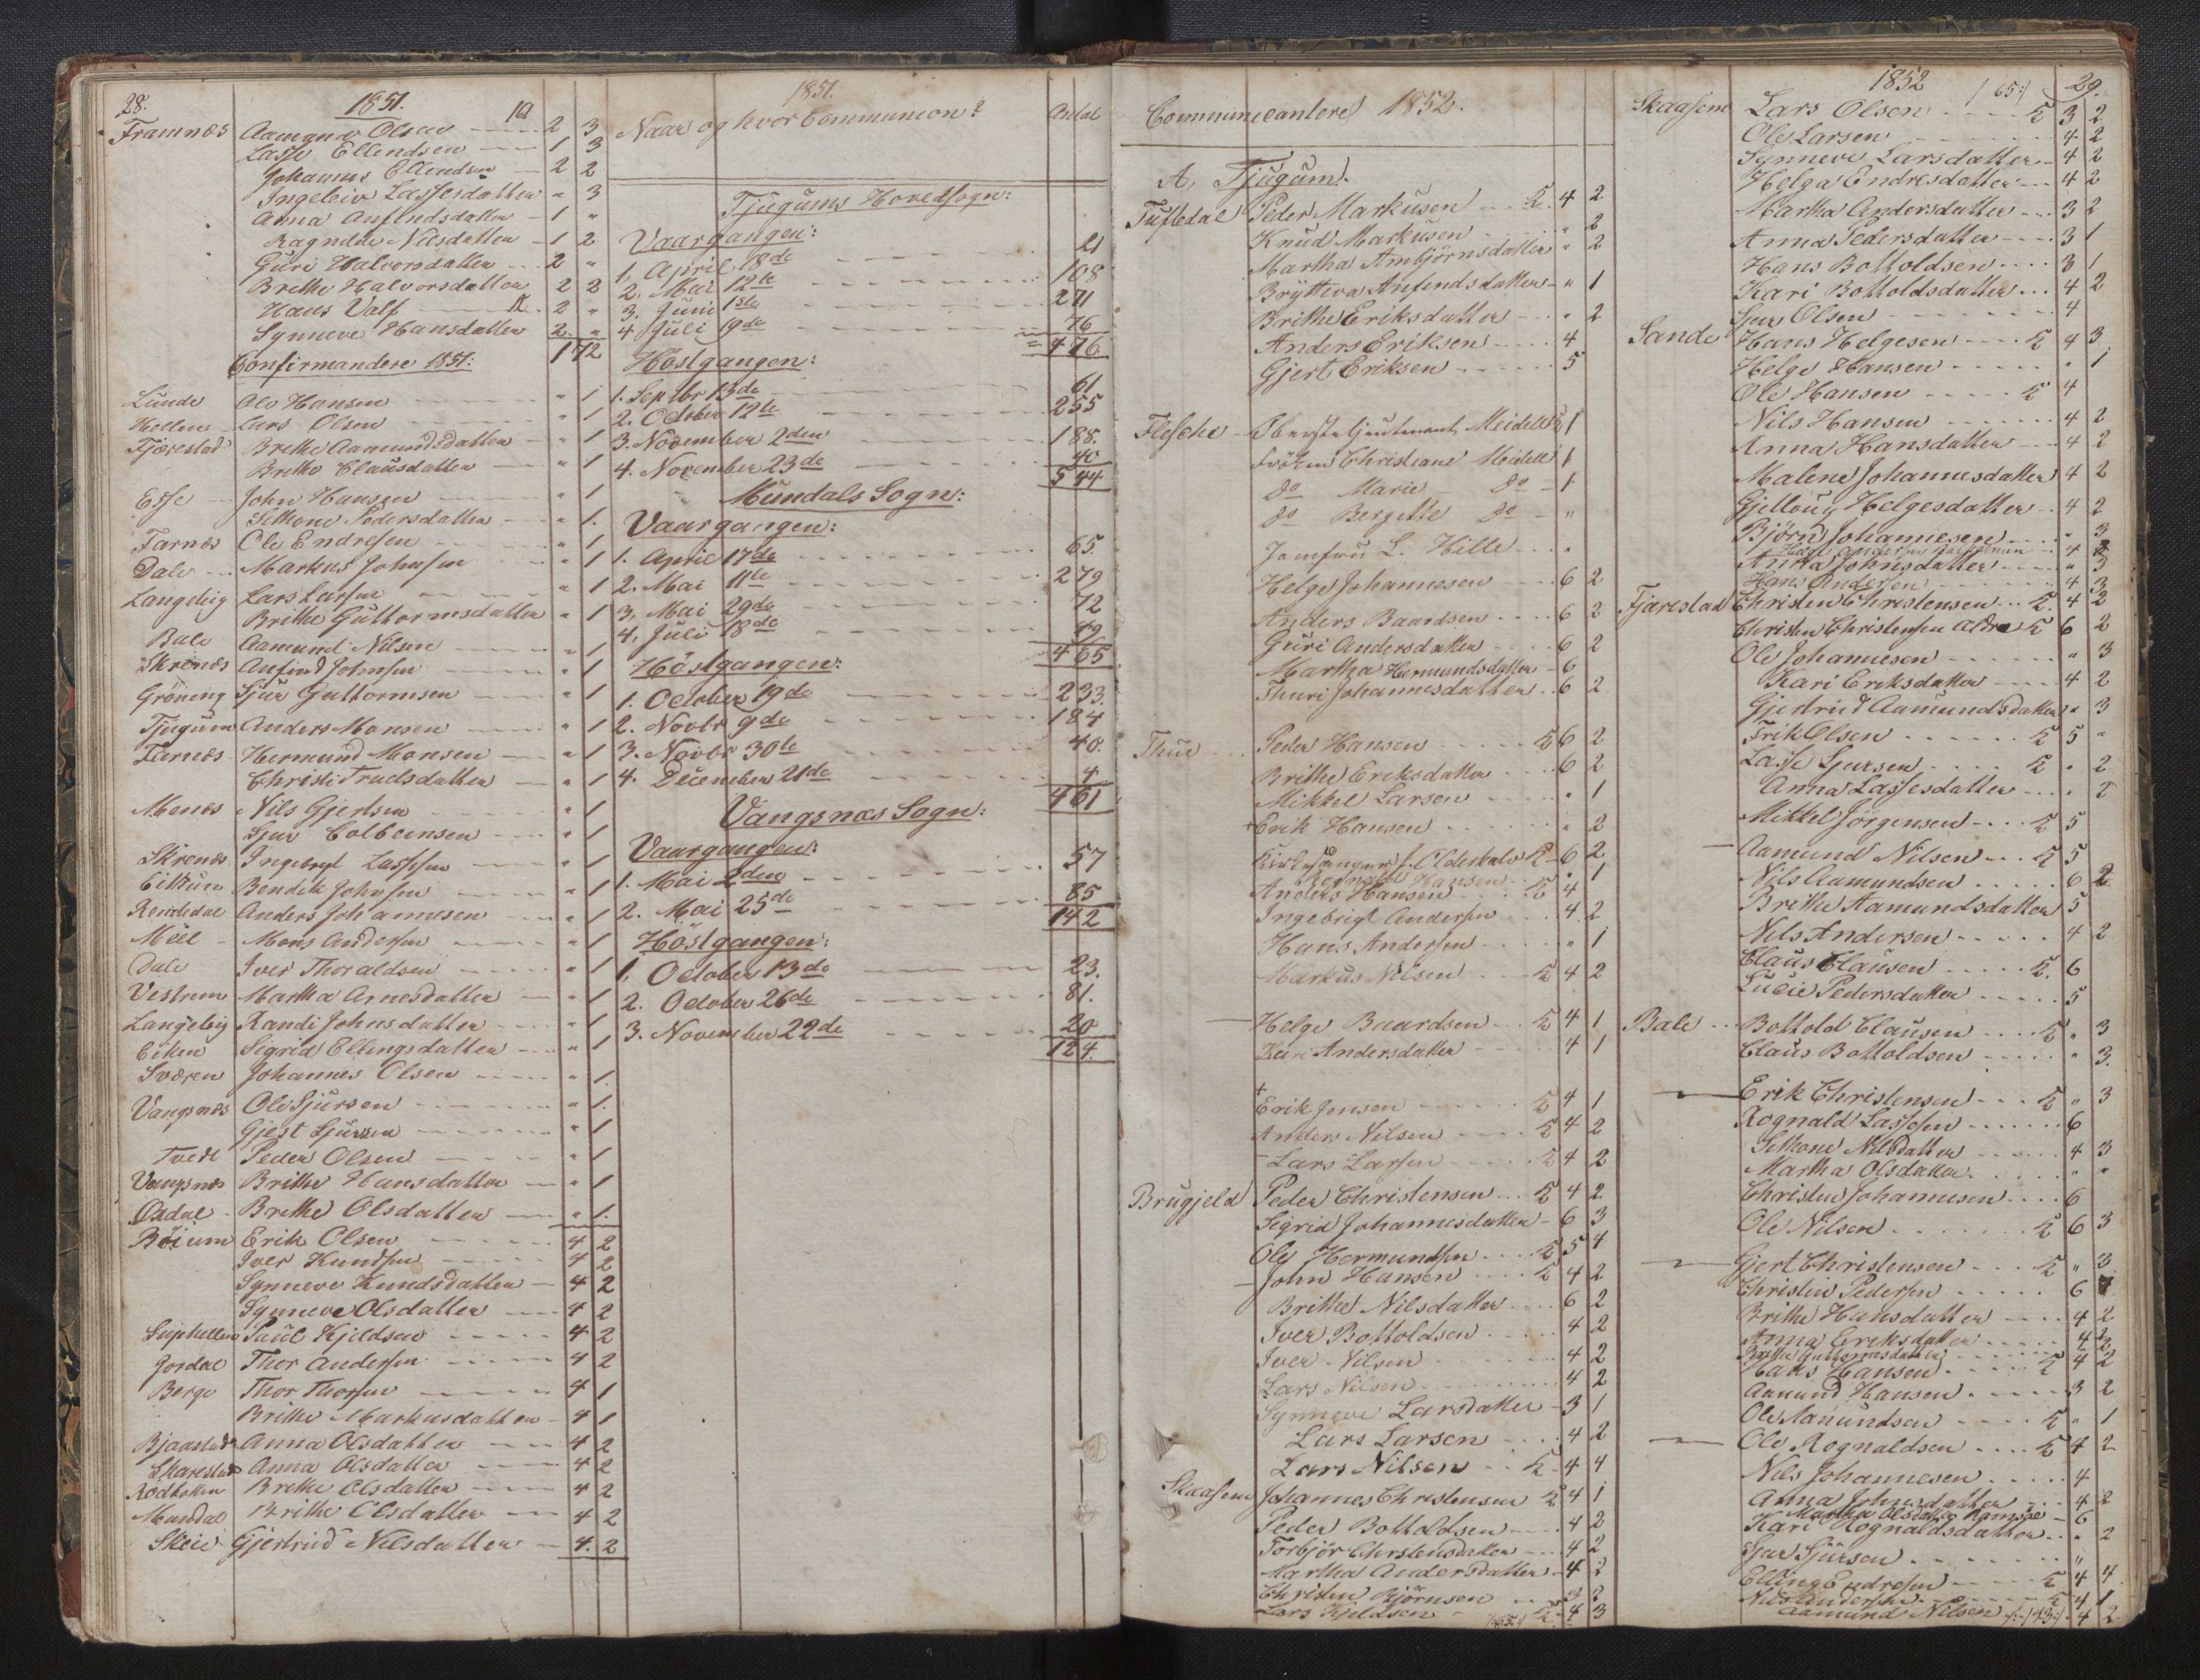 28.
1851.
Framnæs Aamund Olsen 2 3
Lasse Ellendsen 1 3
Johannes Ellendsen 2 2
Ingeleiv Lassesdatter " 3
Anna Anfindsdatter 1 "
Ragnilde Nilsdatter 1 2
Guri Halvorsdatter 2 "
Brithe Halvorsdatter 2 2
Hans Valf 2 "
Synneve Hansdatter 2 "
172
Confirmandere 1851:
Lunde Ole Hansen " 1
Hellen Lars Olsen " 1
Fjærestad Brithe Aamundsdatter " 1
Brithe Clausdatter " 1
Esse John Hansen " 1
Sithone Pedersdatter " 1.
Farnæs Ole Endresen " 1
Dale Markus Johnsen " 1
Langeteig Lars Larsen " 1
Brithe Guttormsdatter " 1
Bale Aamund Nilsen " 1
Skrenæs Anfind Johnsen " 1
Gröning Sjur Guttormsen " 1
Tjugum Anders Monsen " 1
Farnæs Hermund Monsen " 1
Christi Truelsdatter " 1
Menæs Nils Gjertsen " 1
Sjur Colbeinsen " 1
Skrenæs Ingebrigt Lassesen " 1
Eittun Bendik Johnsen " 1
Rendedal Anders Johannesen " 1
Meel Mons Andersen " 1
Dale Iver Thoraldsen " 1
Vestrem Martha Arnesdatter " 1
Langeteig Randi Johnsdatter " 1
Eiken Sigrid Ellingsdatter " 1
Sværen Johannes Olsen " 1.
Vangsnæs Ole Sjursen " 1.
Gjest Sjursen " 1
Tvedt Peder Olsen " 1
Vangsnæs Brithe Hansdatter " 1
Oxdal Brithe Olsdatter " 1.
Böium Erik Olsen 4 2
Iver Knudsen 4 2
Synneve Knudsdatter 4 2
Synneve Olsdatter 4 2
Suphellen Paul Kjeldsen 4 2
Jordal Thor Andersen 4 2
Berge Thor Thorsen 4 1
Brithe Markusdatter 4 1
Bjaastad Anna Olsdatter 4 2
Skarestad Anna Olsdatter 4 2
Rödbotten Brithe Olsdatter 4 2
Mundal Brithe Olsdatter 4 2
Skeie Gjertrud Nilsdatter 4. 2
1851.
Naar og hvor Communion? Antal
Tjugums Hovedsogn:
Vaargangen:
1. April 18de 21
2. Mai 12te 108
3. Juni 1ste 271
4 Juli 19de 76
476
Höstgangen:
1. Septbr 13de 61
2. October 12te 255
3. November 2den 188.
4. November 23de 40
544
Mundals Sogn:
Vaargangen:
1. April 17de 65
2. Mai 11te 279
3. Mai 29de 72
4. Juli 18de 49
465
Höstgangen:
1. October 19de 233.
2. Novbr 9de 184
3. Novbr 30te 40.
4. December 21de 4
461
Vangsnæs Sogn:
Vaargangen:
1. Mai 2den 57
2. Mai 25de 85
142
Höstgangen:
1. October 13de 23.
2. October 26de 81.
3. November 22de 20
124.
Communicantere 1852.
A, Tjugum.
Tuftedal Peder Markusen 4 2
Knud Markusen " 2
Martha Ambjörnsdatter " 2
Brytteva Anfindsdatter " 1
Brithe Eriksdatter " 2
Anders Eriksen 4
Gjert Eriksen 5
Flesche Oberstelieutenant Meidell 1
Fröken Christiane Meidell 1
do Marie do 1
do Bergitte do "
Jomfru L. Hille "
Helge Johannesen 6 2
Anders Baardsen 6 2
Guri Andersdatter 6 2
Martha Hermundsdatter 6
Thuri Johannesdatter 6 2
Thue Peder Hansen 6 2
Brithe Eriksdatter 6 2
Mikkel Larsen " 1
+Erik Hansen " 2
Kirkesanger 6 2
Rognald Hansen " 1
Anders Hansen 4
Ingebrigt Andersen 4 2
Hans Andersen " 1
Markus Nilsen 4 2
Helge Baardsen 4 1
Kari Andersdatter 4 1
+
Erik Jensen 4 1
Anders Nilsen 4 2
Lars Larsen 4 2
Brugjeld Peder Christensen 4 2
Sigrid Johannesdatter 6 3
Ole Hermundsen 5 4
John Hansen 4 2
Brithe Nilsdatter 6 2
Iver Bottoldsen 4 2
Iver Nilsen 4 2
Lars Nilsen 4 2
Synneve Larsdatter 3 1
Lars Larsen 4 2
Lars Nilsen 4 4
Skaasem Johannes Christensen 4 1
Peder Bottoldsen 4 2
Torbjör Christensdatter 4 2
Martha Andersdatter 4
Christen Björnsen
Lars Kjeldsen 4 3
1852 29.
/65:/
Skaasem Lars Olsen 3 2
Ole Larsen 4 2
Synneve Larsdatter 4 2
Helga Endresdatter 4 2
Martha Andersdatter 3 2
Anna Pedersdatter 3 1
Hans Bottoldsen 3 1
Kari Bottoldsdatter 4 2
Sjur Olsen 4
Sande Hans Helgesen 4 3
Helge Hansen " 1
Ole Hansen 4
Nils Hansen 4 2
Anna Hansdatter 4 2
Malene Johannesdatter 4 2
Gjellaug Helgesdatter 4 2
Björn Johannesen " 3
Anna Johnsdatter " 3
Hans Andersen 4 3
Fjærestad Christen Christensen 4 2
Christen Christensen Ældre 6 2
Ole Johannesen " 3
Kari Eriksdatter 4 2
Gjertrud Aamundsdatter " 3
Erik Olsen 5 "
Lasse Sjursen " 2
Anna Lassesdatter " 2
Mikkel Jörgensen 5
Aamund Nilsen 5
Nils Aamundsen 6 2
Brithe Aamundsdatter 5
Nils Andersen 4 2
Claus Clausen 6
Lucie Pedersdatter 5
Bale Bottold Clausen " 3
Claus Bottoldsen " 3.
Erik Christensen " 3
Rognald Lassesen 6
Sithone Nilsdatter 4 3
Martha Olsdatter " "
Christen Johannesen 6
Ole Nilsen 6 3
Gjert Christensen " 3
Christen Pedersen 6
Brithe Hansdatter 4 2
Anna Eriksdatter 4 2
Brithe Guttormsdatter
Hans Hansen 4 2
Aamund Hansen 3 2
Ole Aamundsen " 1
Ole Rognaldsen 4 2
Nils Johannesen 4
Anna Johnsdatter 4 2
Martha Olsdatter 6
Kari Rognaldsdatter " 2
Sjur Sjursen "
Elling Endresen 4 4
Nils Andersen 4 1
Aamund Nilsen 4 2